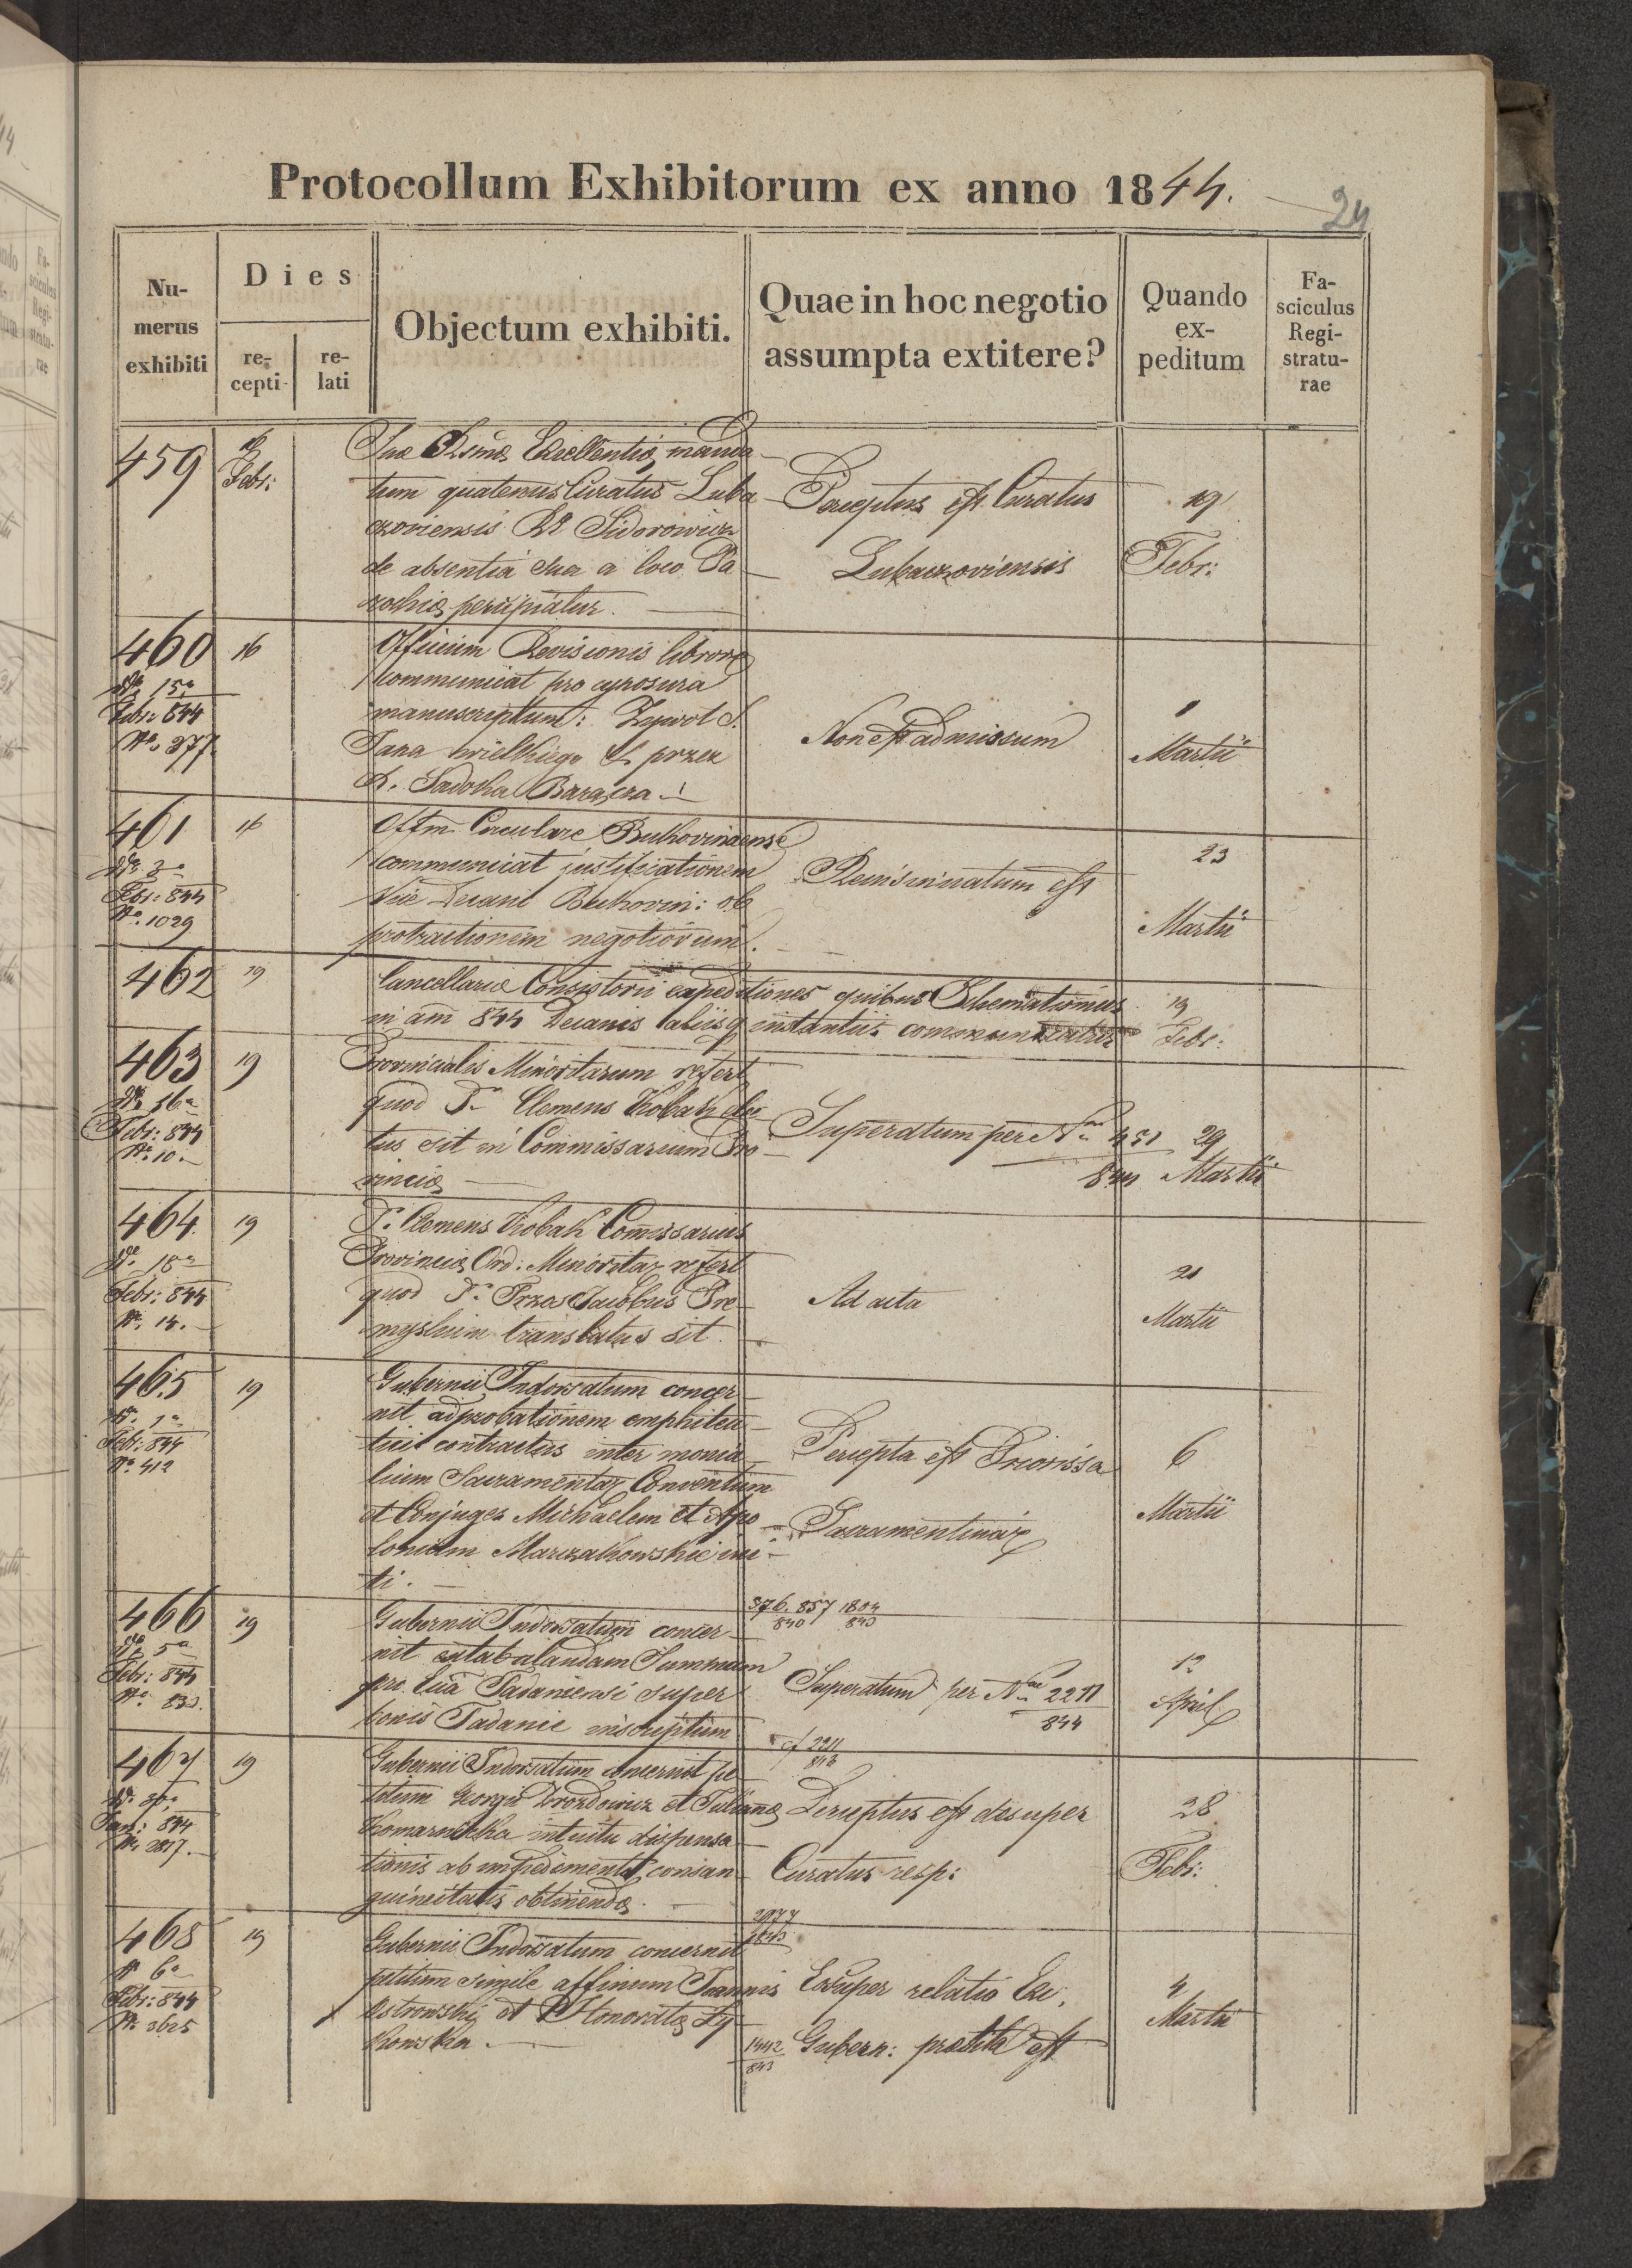 Protocollum Exhibitorum ex anno 1844.
24
Nu-
merus
exhibiti
Dies
re-
cepti
re-
lati
Objectum exhibiti.
Quae in hoc negotio
assumpta extitere?
Quando
ex-
peditum
Fa-
sciculus
Regi-
stratu-
rae
459
Febr:
Suae Excellentiae manda-
tum quatenus Curatus Luba-
czoviensis Sidorowicz
de absentia sua a loco Pa-
rochiae percipiatur.
Perceptus est Curatus
Lubaczoviensis
19
Febr:
460
16
15a
Febr: 844
No. 377
Officium Revisionis libror
communicat pro cynosura
manuscriptum: Zywot S.
Jana przez
Sadoka Baracza
Non est admissum
1
Martii
461
16
Febr: 844
No. 1029
Offm Circulare Bukovinense
communicat justificationem
Vice Decani Bukovin: ob
protractionem negotiorum.
Reinsinuatum est
23
Martii
462
19
Cancellariae Consistorii expeditiones quibus Schematismus
in am 844 Decanis aliisq instantiis communicatur
19
Febr:
463
19
16a
Febr: 844
No. 10.
Provincialis Minoritarum refert
quod P. Clemens Kobak elec-
tus sit in Commissarium Pro-
vinciae
Superatum per Num 451
844
29
Martii
464
19
18a
Febr: 844
No. 14.
P. Clemens Kobak Comissarius
Provinciae Ord: Minoritar refert
quod P. Jacobus Pre-
mysliam translatus sit.
Ad acta
21
Martii
465
19
1a
Febr: 844
No. 412
Gubernii Indorsatum concer-
nit adprobationem emphiteu-
tici contractus inter monia-
lium Sacramentar Conventum
et Conjuges Michaelem et Apo-
loniam Marczakowskie ini-
ti.
Percepta est Priorissa
Sacramentinar
6
Martii
466
19
5a
Febr: 844
No. 833.
Gubernii Indorsatum concer-
nit extabulandam Summam
pro Ecclia Tadaniensi super
bonis Tadanie inscriptam
376. 857 1804
840 843
Superatum per Num 2211
844
12
April
467
19
Jan: 844
No. 2817.
Gubernii Indorsatum concernit pe-
titum Georgii Drozdowicz et Julianae
Komarnicka intuitu dispensa-
tionis ab impedimento consan-
guineitatis obtinendae.
cf 2211
843
Perceptus est desuper
Curatus resp:
28
Febr:
468
19
6a
Febr: 844
No 3625
Gubernii Indorsatum concernit
petitum simile affinium Joannis
Ostrowski et Honoratae Zy-
kowska.
2977
843
1442
843
Desuper relatio Exc.
Gubern: praestita est
4
Martii